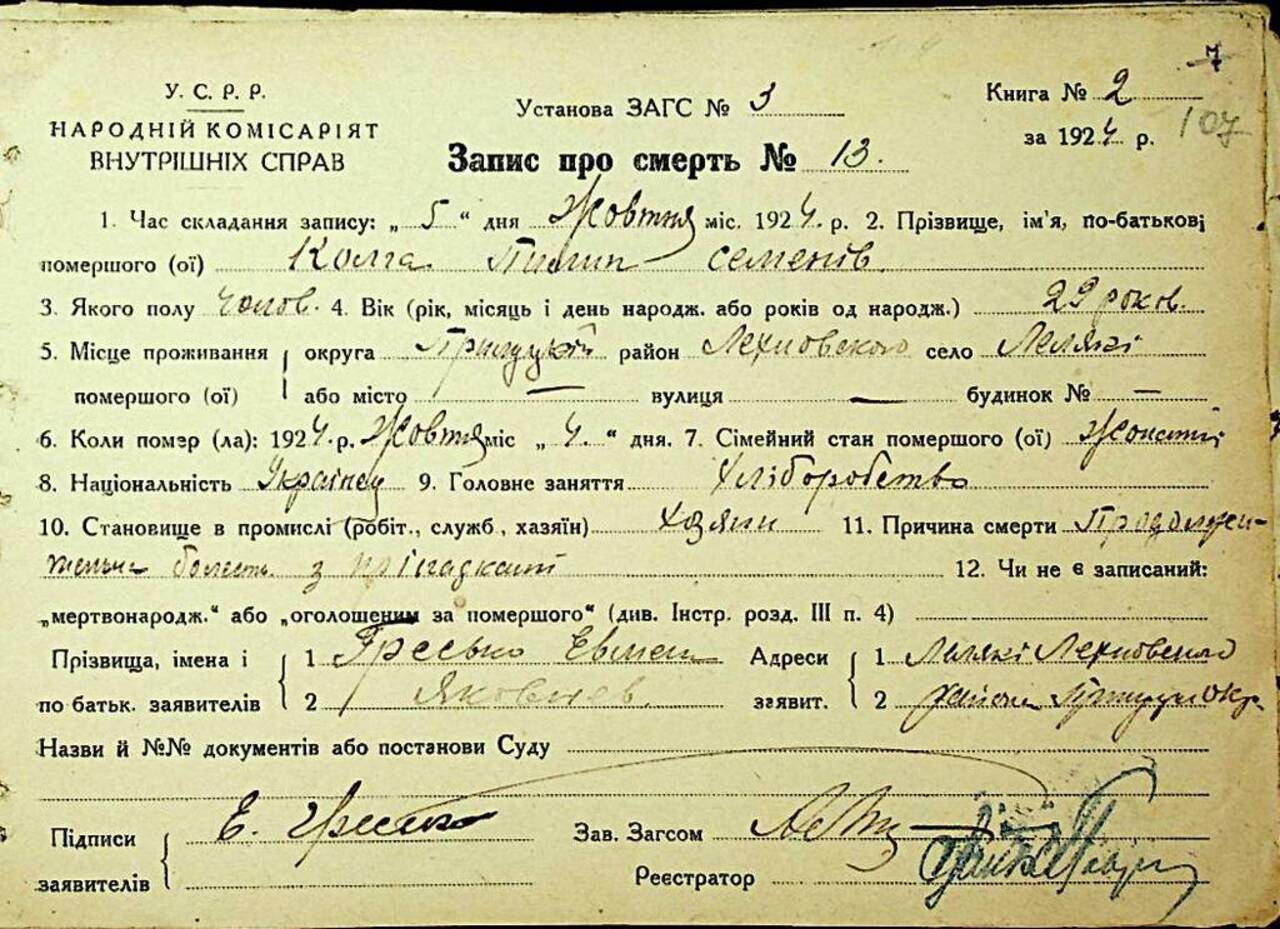 7
У. С. Р. Р.
НАРОДНІЙ КОМІСАРІЯТ
ВНУТРІШНІХ СПРАВ
Установа ЗАГС № 3
Книга № 2
за 1924 р. 107
Запис про смерть № 13.
1. Час складання запису: „ 5 “ дня Жовтня міс. 1924. р. 2. Прізвище, ім'я, по-батькові
помершого (ої) Колга Пилип Семенів.
3. Якого полу чолов. 4. Вік (рік, місяць і день народж. або років од народж.) 29 років.
5. Місце проживання округа Прилуцькій район Лехновского село Леляки
помершого (ої) або місто — вулиця — будинок № —
6. Коли помэр (ла): 1924. р. Жовтня міс „ 4. “ дня. 7. Сімейний стан помершого (ої) Жонатий
8. Національність Українец 9. Головне заняття Хліборобство
10. Становище в промислі (робіт., служб, хазяїн) хозяин 11. Причина смерти Продолжи-
тельна болесть з
12. Чи не є записаний:
„мертвонародж.“ або „оголошеним за помершого“ (див. Інстр. розд. III п. 4)
Прізвища, імена і 1 Гресько Евмен Адреси 1 Леляки Лехновского
по батьк. заявителів 2 Яковлев. заявит. 2 района Прилуц. Окр.
Назви й №№ документів або постанови Суду
Підписи Е. Гресько Зав. Загсом
заявителів Реєстратор